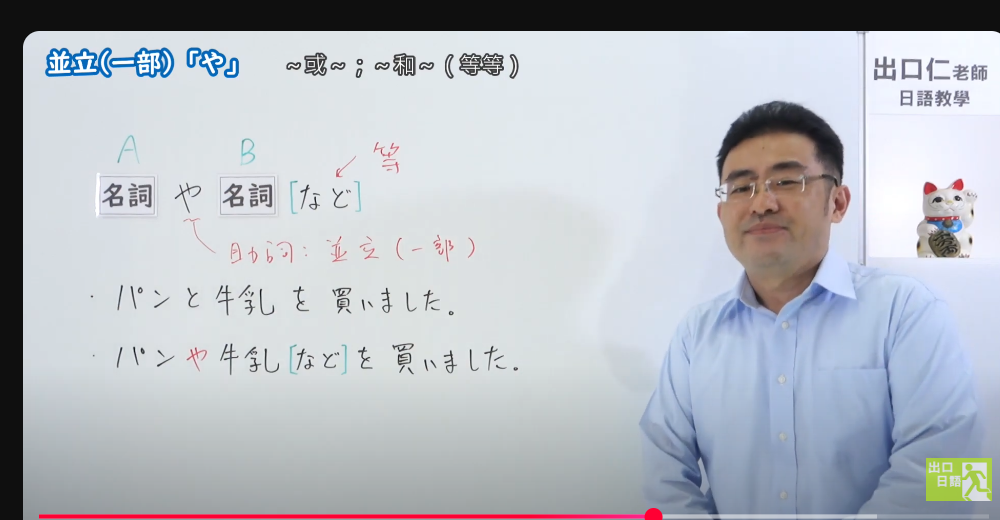 並立(一部)「や」 ～或～；～和～(等等)
出口仁老師
日語教學
A B 等
名詞 や 名詞 [など]
助詞：並立(一部)
・パンと牛乳を買いました。
・パンや牛乳[など]を買いました。
出口
日語